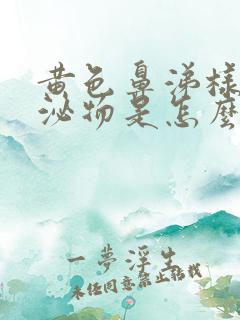 黄色鼻涕样
泌物是怎麼
一夢浮生
未经同意禁止转载